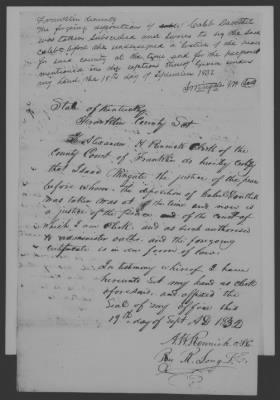 Franklin County
The foregoing deposition of Caleb
was taken subscribed and sworn to by the said
Caleb before the undersigned a Justice of the peace
for said county at the time and for the purpose
mentioned in the caption thereof Given under
my hand the 18th day of September 1832
State of Kentucky
Franklin County Sct
I Alexander H Rennick Clerk of the
County Court of Franklin do hereby certify
that Isaac Wingate the justice of the peace
before whom the deposition of Caleb
was taken was at the time and now is
a justice of the peace and of the court of
which I am Clerk and as such authorised
to administer oaths and the foregoing
certificate is in due form of law
In testimony whereof I have
hereunto set my hand as clerk
aforesaid and affixed the
Seal of my office this
19th day of Sept AD 1832
A.H. Rennick